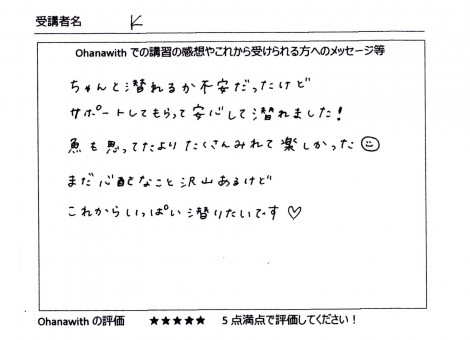 受講者名 K
Ohanawith での講習の感想やこれから受けられる方へのメッセージ等
ちゃんと潜れるか不安だったけど
サポートしてもらって安心して潜れました!
魚も思ってたよりたくさんみれて楽しかった☺
まだ心配なこと沢山あるけど
これからいっぱい潜りたいです♡
Ohanawith の評価 ★★★★★ 5点満点で評価してください!